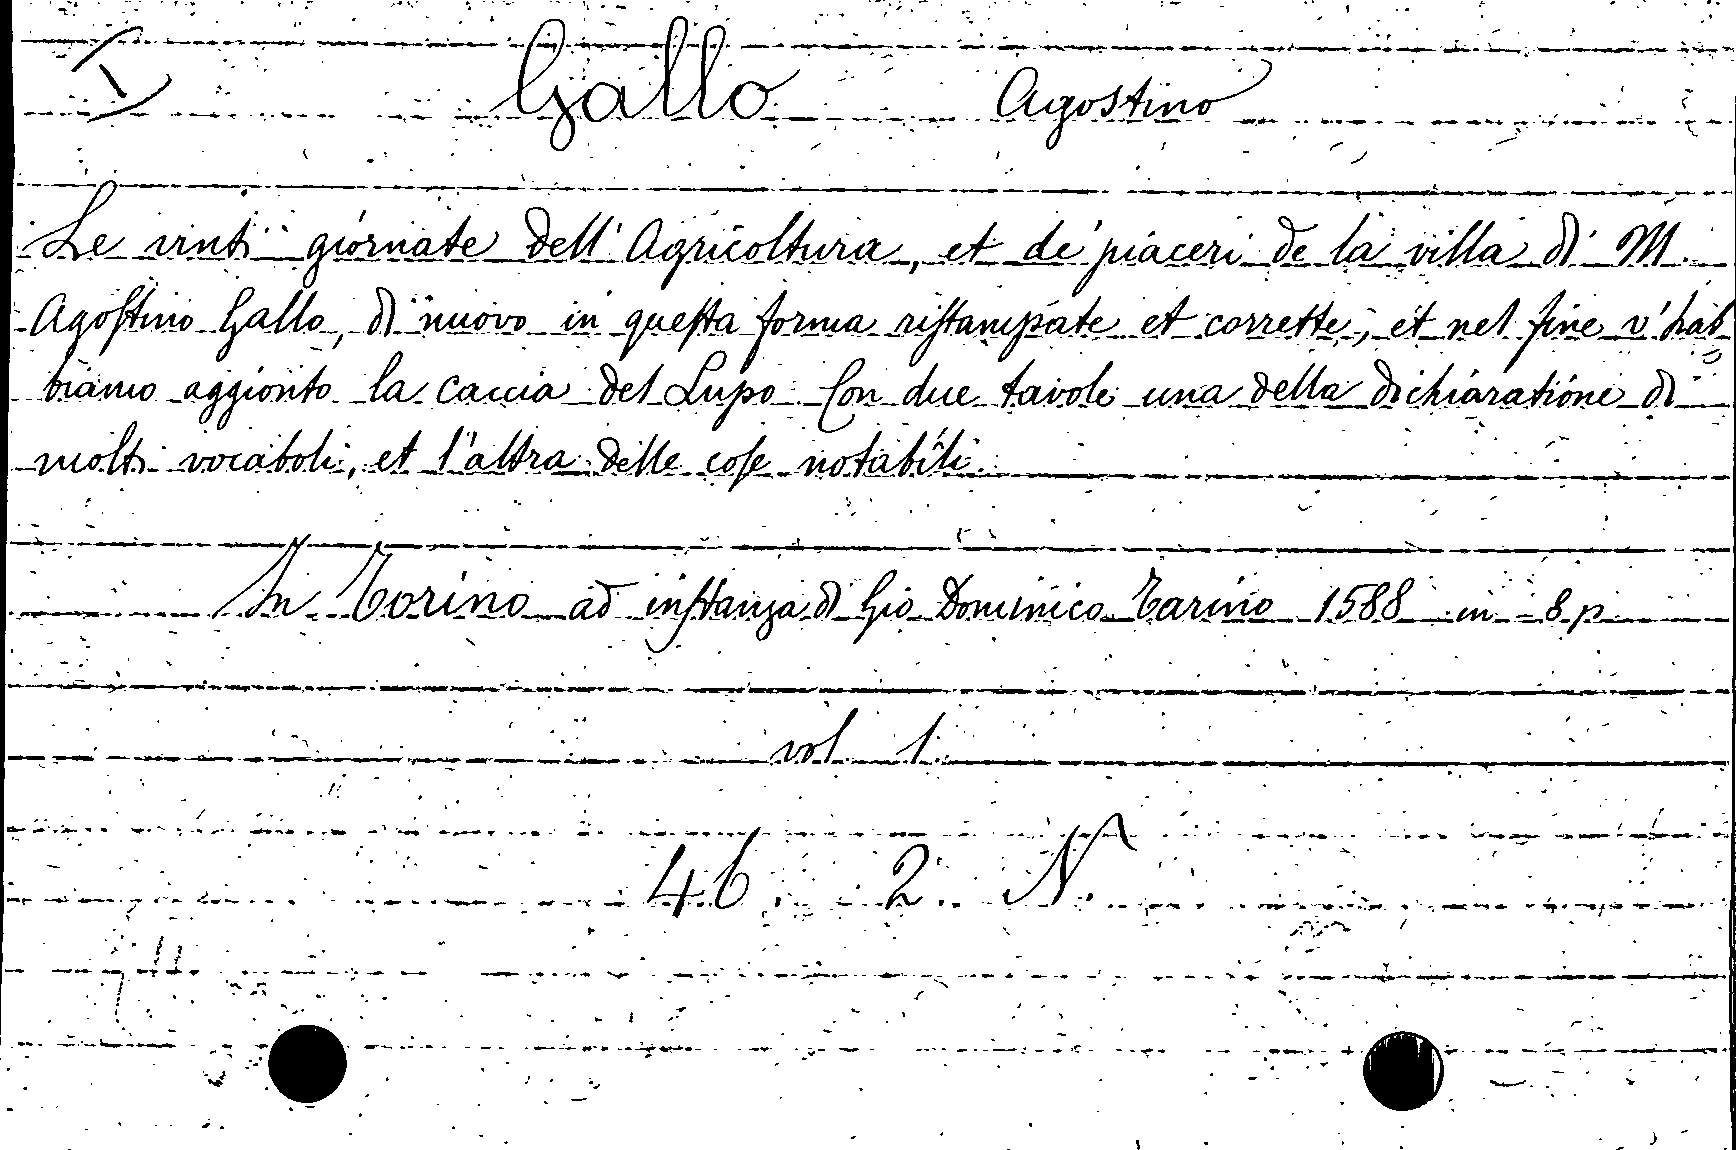 Gallo Agostino
Le vinti giornate dell' Agricoltura, et de' piaceri de la villa di M.
Agoſtino Gallo, di nuovo in queſta forma riſtampate et corrette, et nel fine v'hab
biamo aggionto la caccia del Lupo. Con due tavole una della dichiaratione di
molti vocaboli, et l'altra delle coſe notabili.
In Torino ad inſtanza di Gio Dominico Tarino 1588 in 8 p.
vol. 1.
46. 2. N.